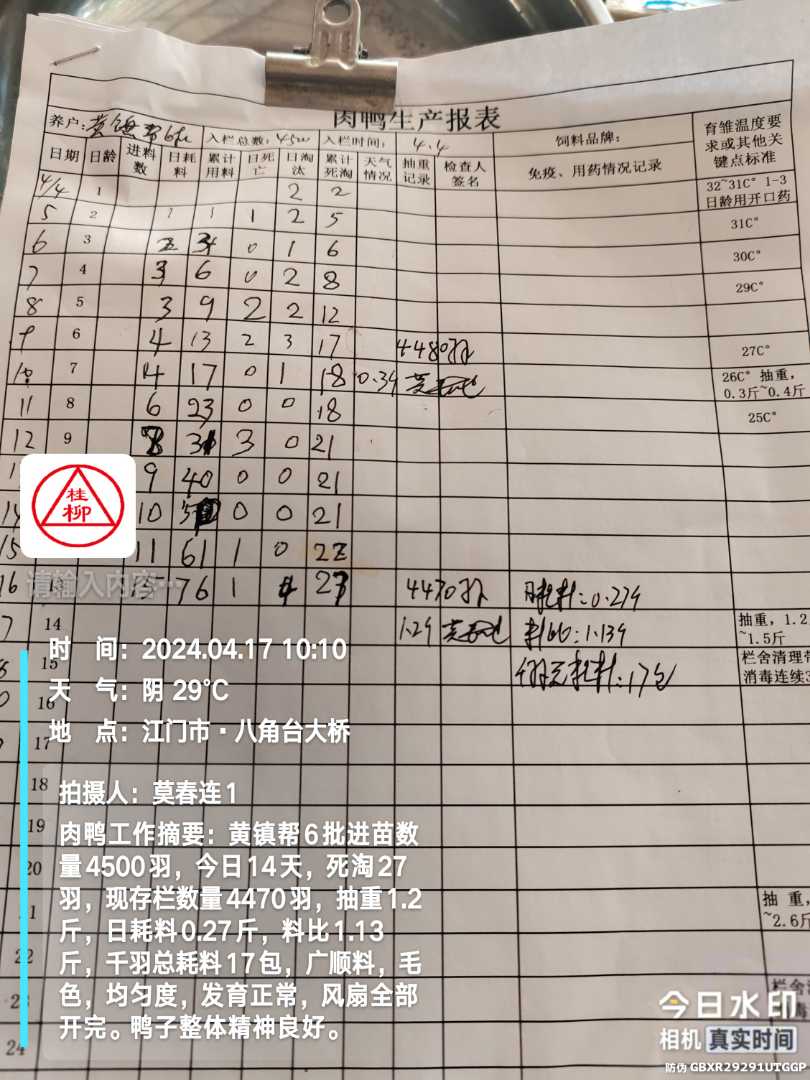 肉鸭生产报表
养户: 黄镇帮6批 入栏总数: 4500 入栏时间: 4.4 饲料品牌: 育雏温度要求或其他关键点标准
日期 日龄 进料数 日耗料 累计用料 日死亡 日淘汰 累计死淘 天气情况 抽重记录 检查人签名 免疫、用药情况记录
4/4 1 2 2 32~31C° 1-3日龄用开口药
5 2 1 1 1 2 5 31C°
6 3 2 3 0 1 6 30C°
7 4 3 6 0 2 8 29C°
8 5 3 9 2 2 12
9 6 4 13 2 3 17 4480羽 27C°
10 7 4 17 0 1 18 0.34 26C° 抽重，0.3斤~0.4斤
11 8 6 23 0 0 18 25C°
12 9 8 31 3 0 21
9 40 0 0 21
14 10 0 0 21
15 11 61 1 0 22
16 13 15 76 1 4 27 4470羽 日耗料:0.27斤
14 1.2斤 料比:1.13斤 抽重，1.2~1.5斤
15 千羽总耗料:17包 栏舍清理带消毒连续3
16
17
18
19
20
21 抽重，~2.6斤
22
23 栏舍清
24
桂柳
请输入内容…
时 间: 2024.04.17 10:10
天 气: 阴 29℃
地 点: 江门市·八角台大桥
拍摄人: 莫春连1
肉鸭工作摘要: 黄镇帮6批进苗数
量4500羽，今日14天，死淘27
羽，现存栏数量4470羽，抽重1.2
斤，日耗料0.27斤，料比1.13
斤，千羽总耗料17包，广顺料，毛
色，均匀度，发育正常，风扇全部
开完。鸭子整体精神良好。
今日水印
相机 真实时间
防伪 GBXR29291UTGGP